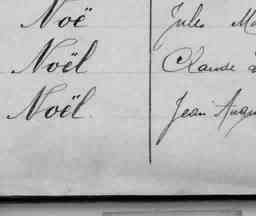 Noë Jules
Noël Claude
Noël Jean